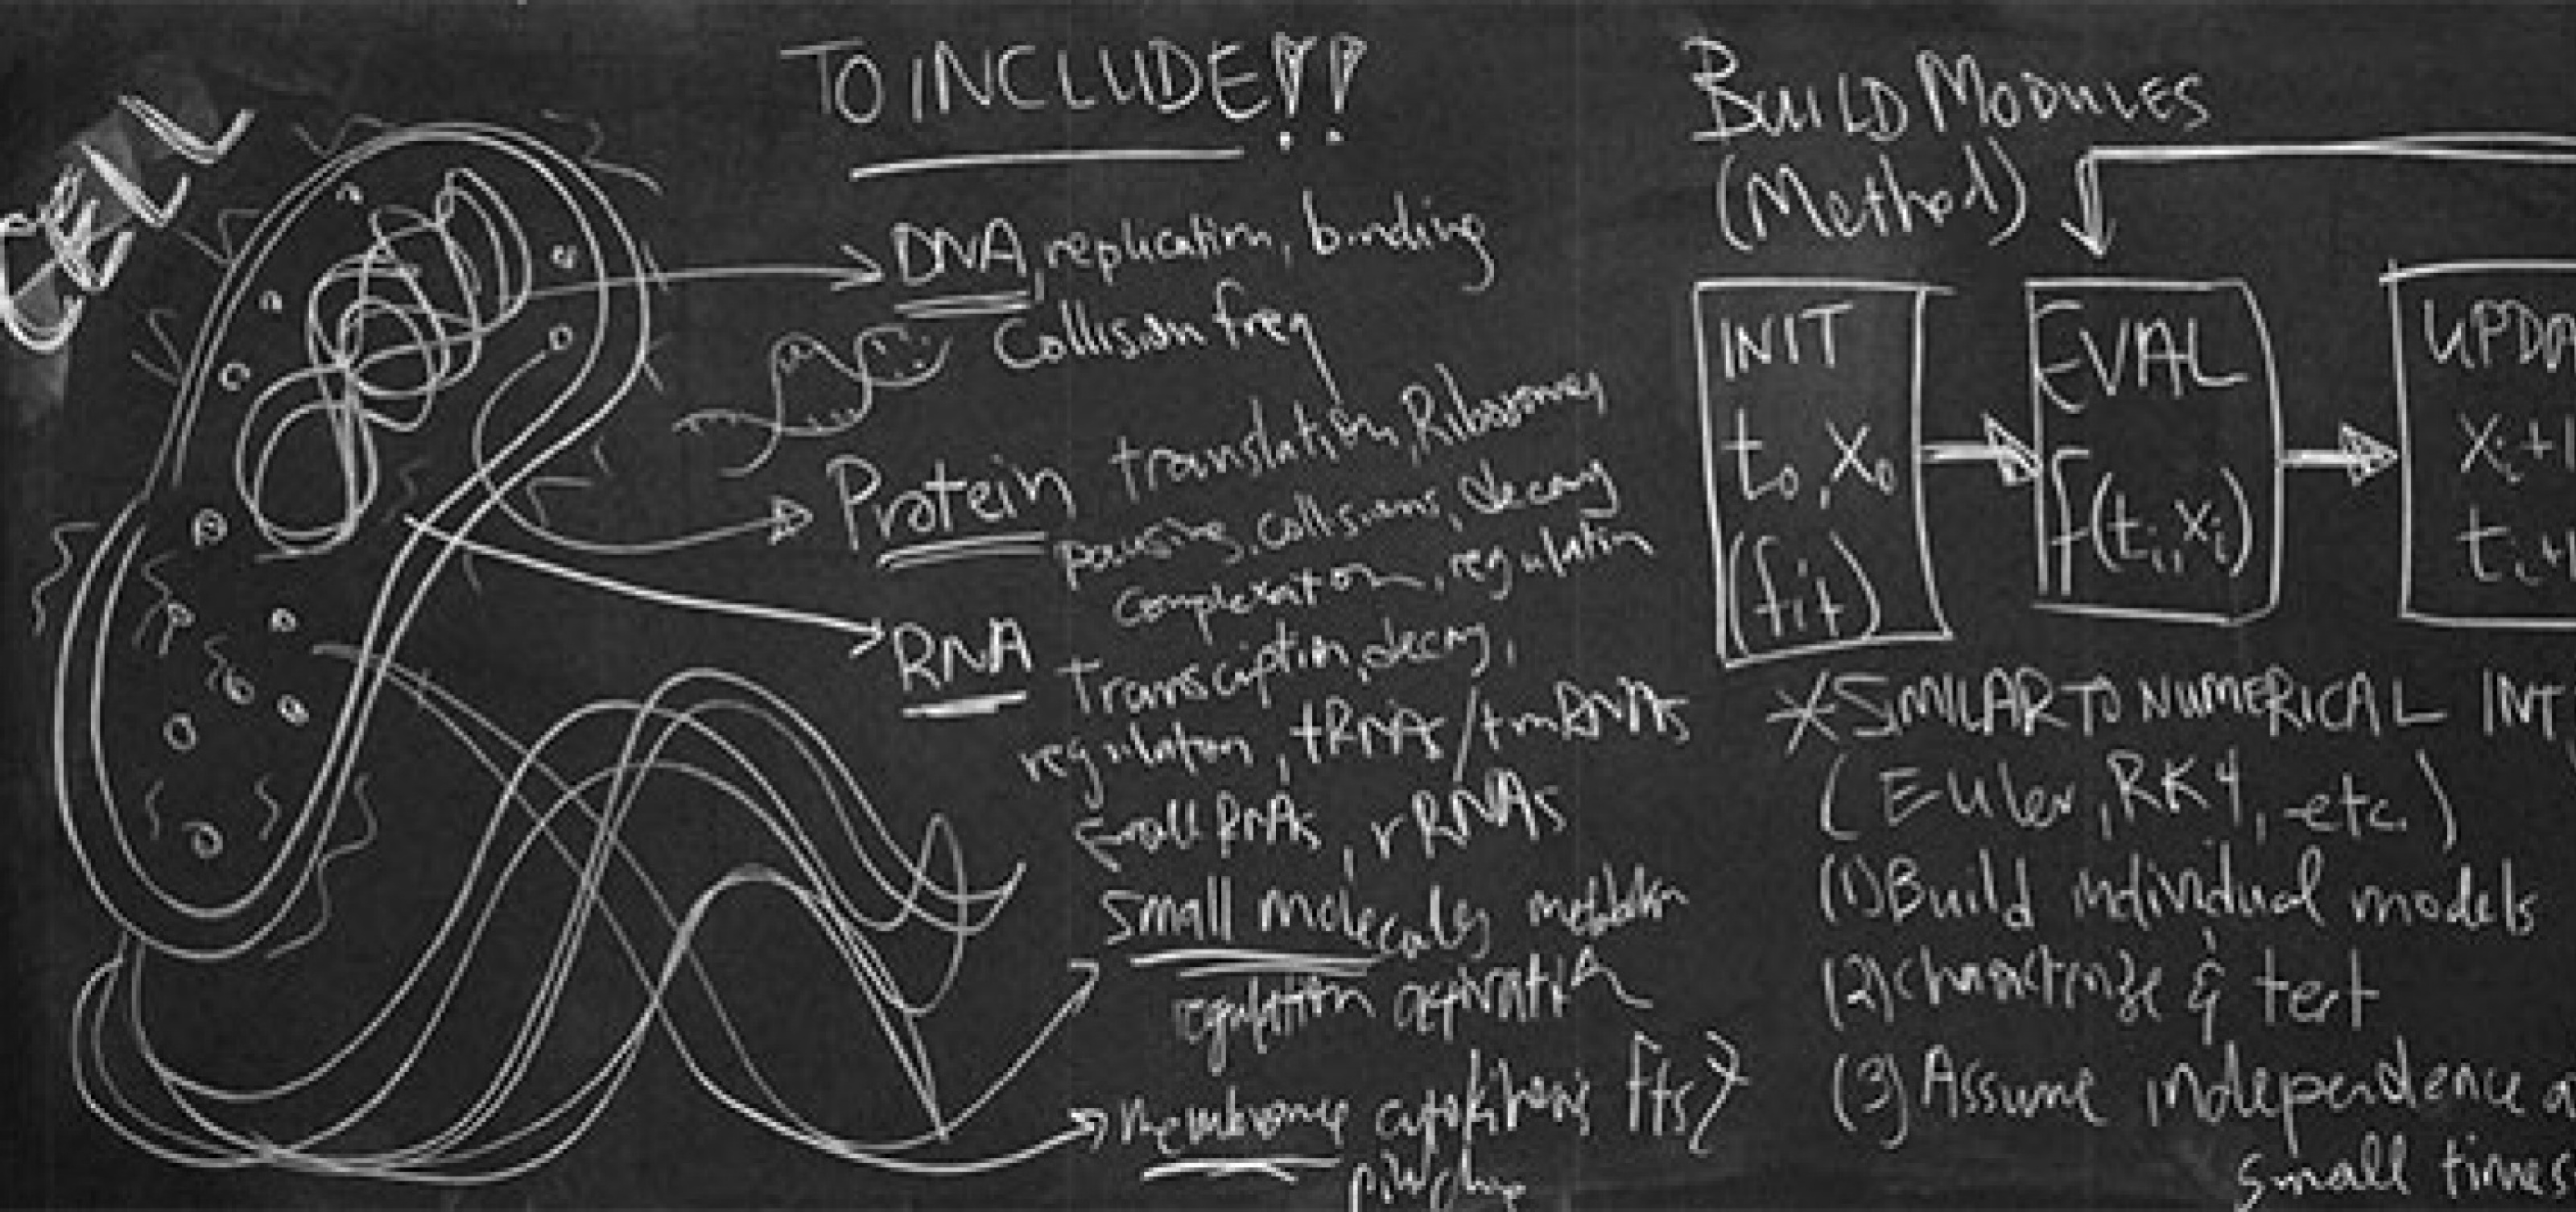 CELL
TO INCLUDE!!
DNA, replication, binding
Collision freq
Protein translation, Ribosomes
pausing, collisions, decay
complexation, regulation
RNA Transcription, decay,
regulation, tRNAs/tmRNAs
small RNAs, rRNAs
Small molecules
regulation activation
Membrane cytokinesis FtsZ
BUILD MODULES
(Method)
INIT
t₀, x₀
(fit)
EVAL
f(tᵢ, xᵢ)
UPDA
xᵢ+1
tᵢ+1
*SIMILAR TO NUMERICAL INT
(Euler, RK4, etc.)
(1) Build individual models
(2) characterize & test
(3) Assume independence
small times